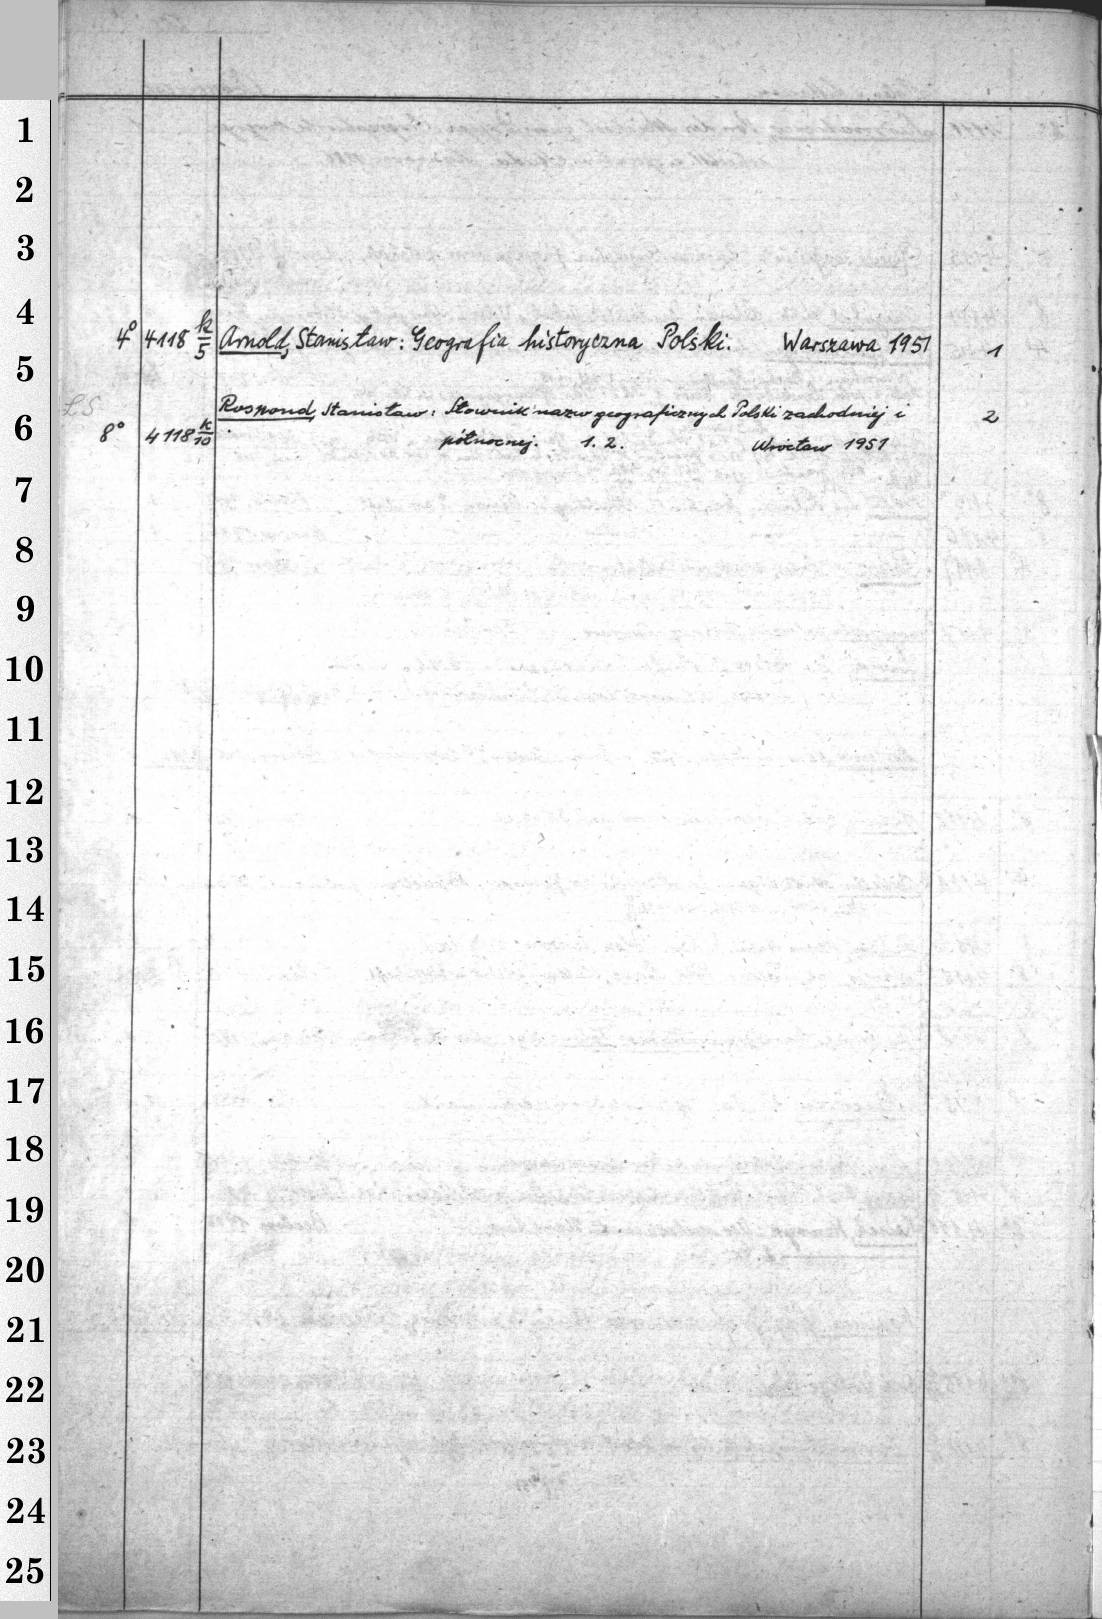 1
2
3
4
4° 4118 k/5 Arnold, Stanisław: Geografia historyczna Polski. Warszawa 1951 1
5
LS Rospond, Stanisław: Słownik nazw geograficznych Polski zachodniej i 2
6
8° 4118 k/10 północnej. 1. 2. Wrocław 1951
7
8
9
10
11
12
13
14
15
16
17
18
19
20
21
22
23
24
25